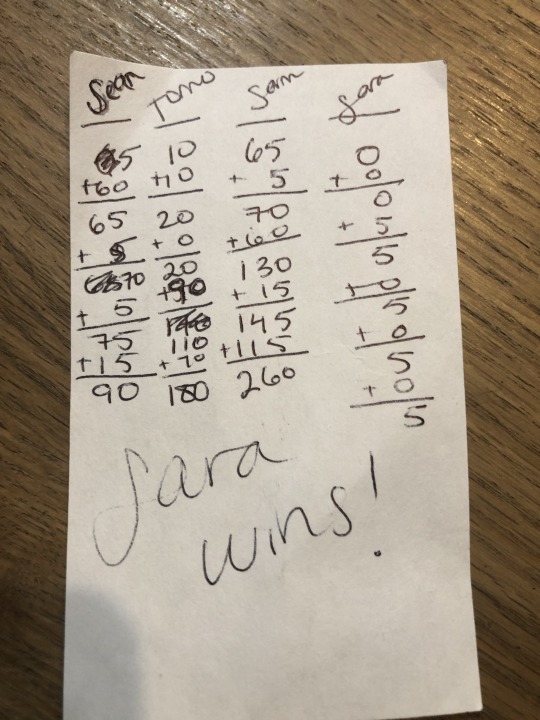 Sean Tomo Sam Sara
5 10 65 0
+60 +10 + 5 + 0
65 20 70 0
+ 5 + 0 +60 + 5
70 20 130 5
+ 5 +90 + 15 + 0
75 110 145 5
+15 +70 +115 + 0
90 180 260 5
+ 0
5
Sara
wins!